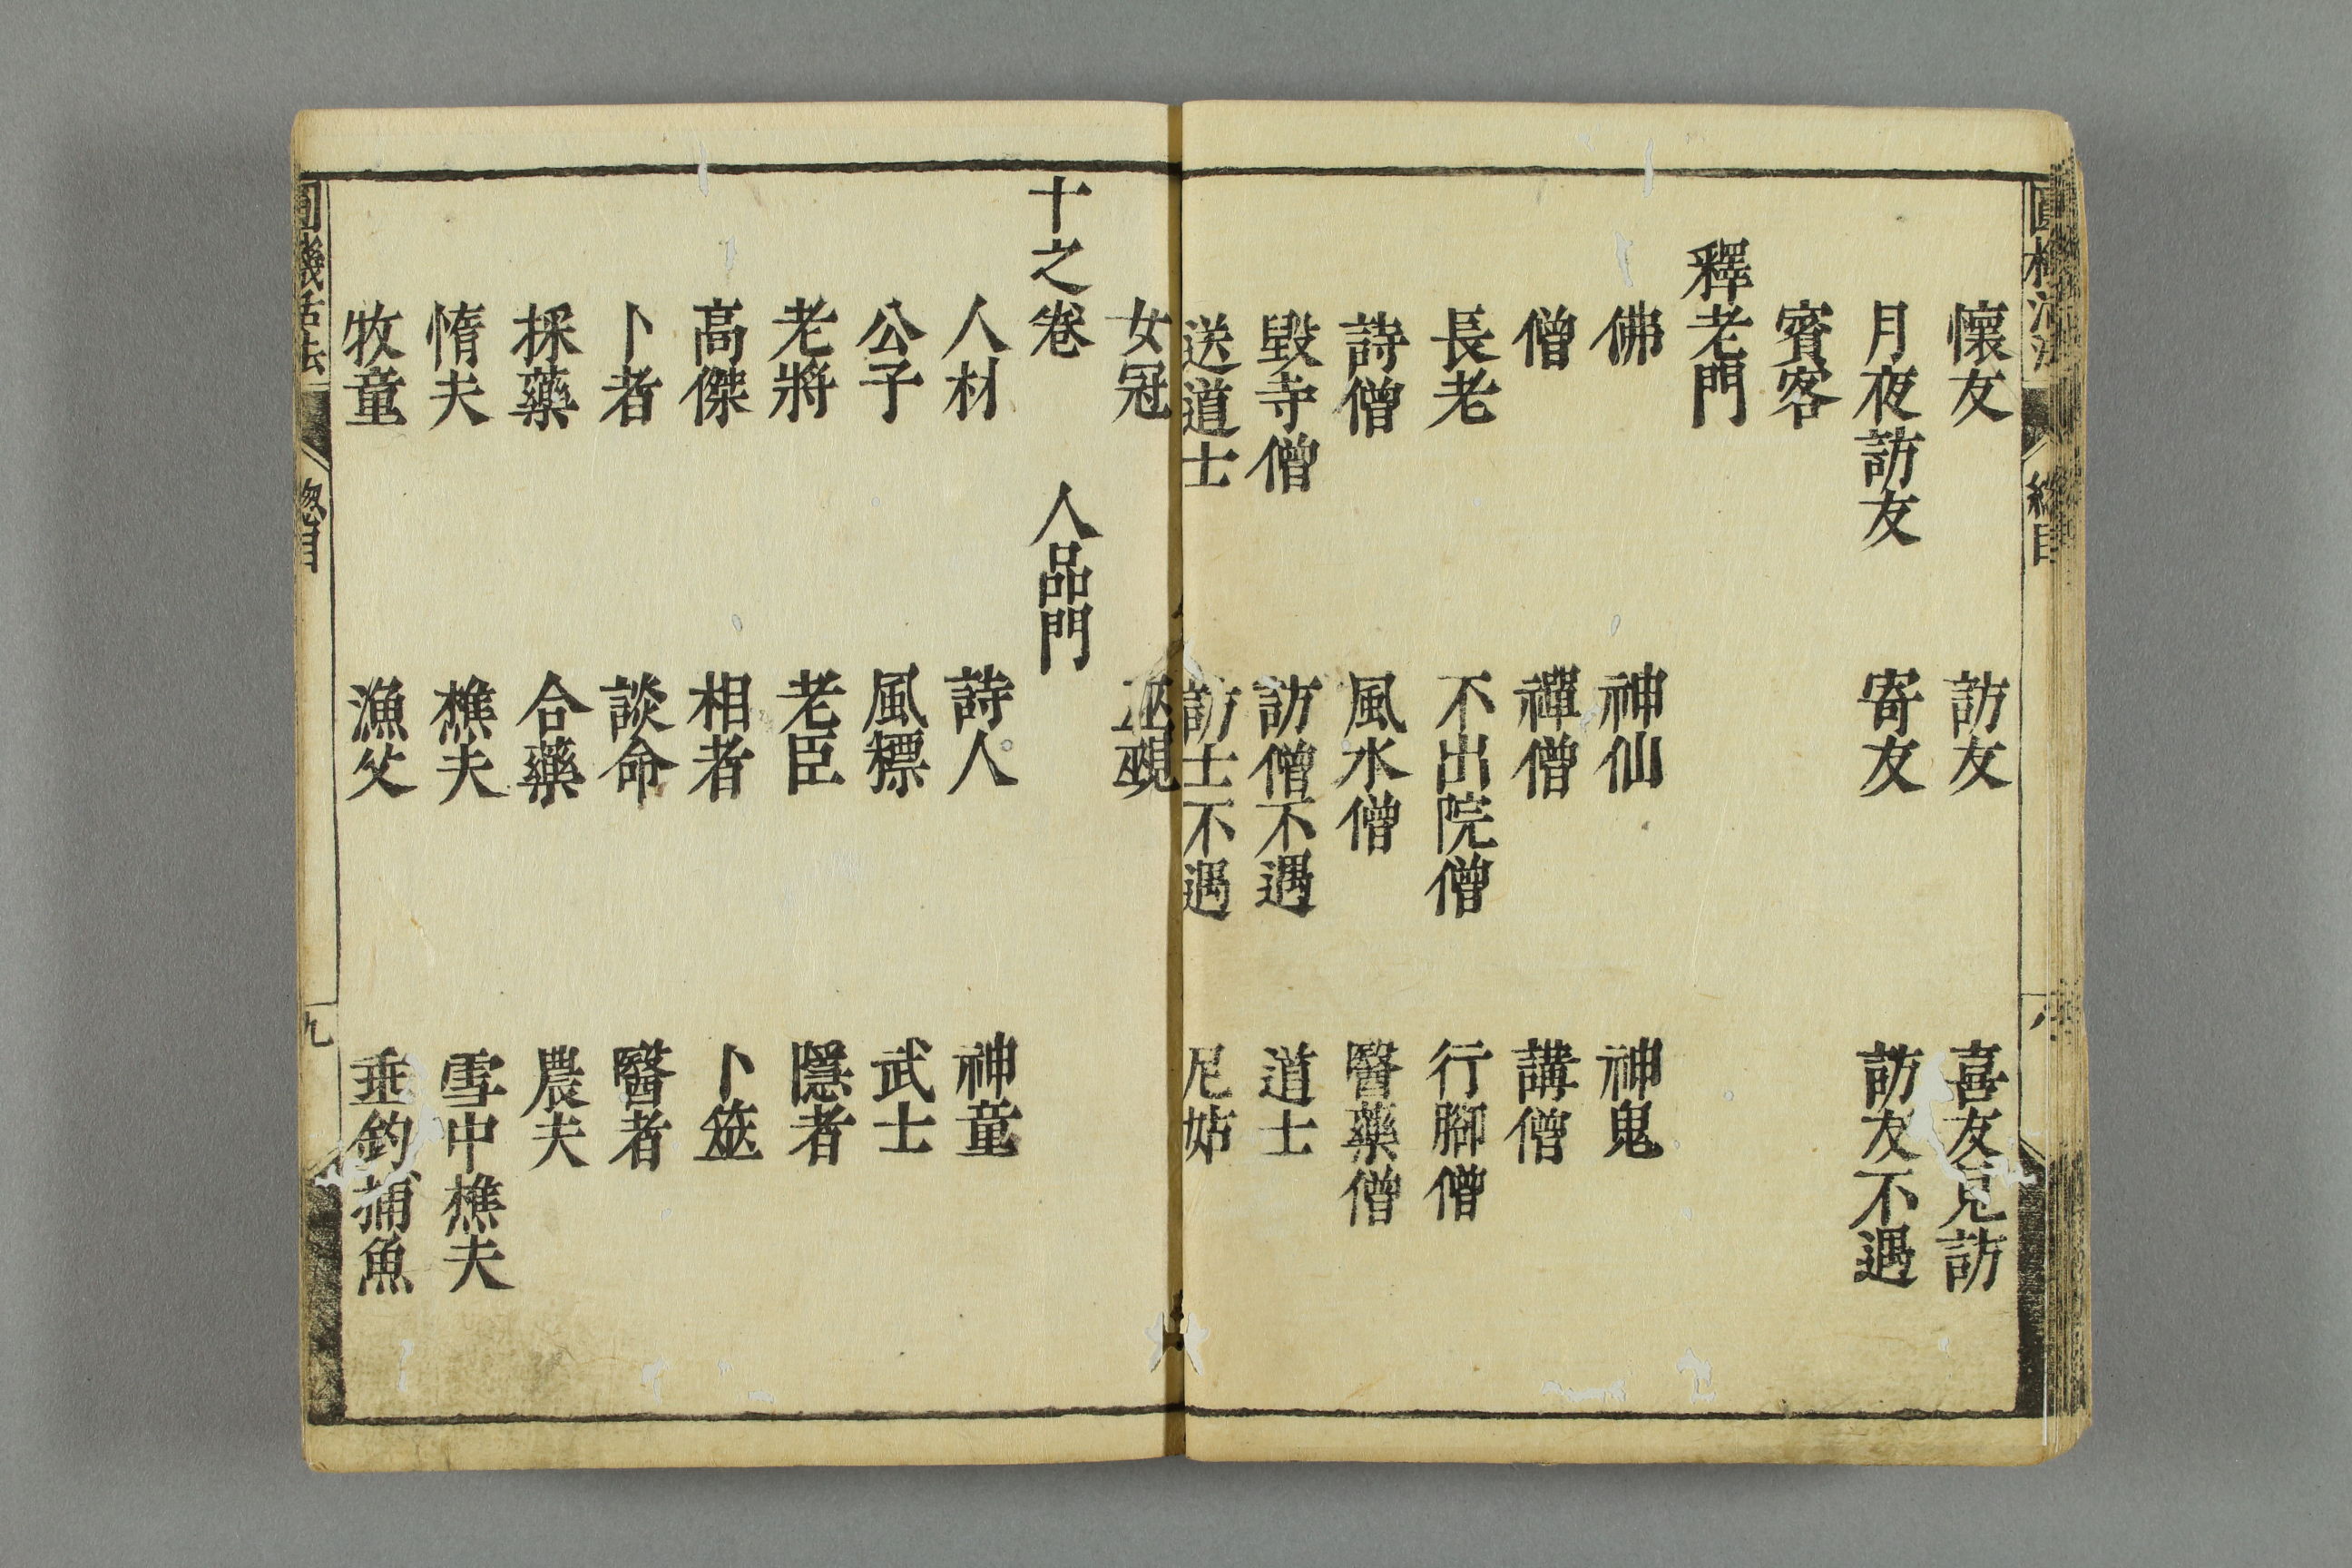 懷友　訪友　喜友見訪
月夜訪友　寄友　訪友不遇
賓客
釋老門
佛　神仙　神鬼
僧　禪僧　講僧
長老　不出院僧　行腳僧
詩僧　風水僧　醫藥僧
毀寺僧　訪僧不遇　道士
送道士　訪士不遇　尼姑
女冠　巫覡
十之卷　人品門
人材　詩人　神童
公子　風標　武士
老將　老臣　隱者
高傑　相者　卜筮
卜者　談命　醫者
採藥　合藥　農夫
惰夫　樵夫　雪中樵夫
牧童　漁父　垂釣捕魚
機活法　總目　九